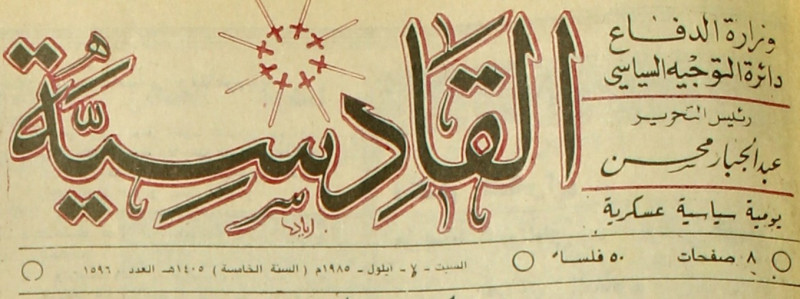 وزارة الدفاع
دائرة التوجيه السياسي
رئيس التحرير
عبد الجبار محسن
يومية سياسية عسكرية
القادسية
٨ صفحات
٥٠ فلسا
السبت - ٧ - ايلول - ١٩٨٥م ( السنة الخامسة ) ١٤٠٥هـ العدد ١٥٩٦